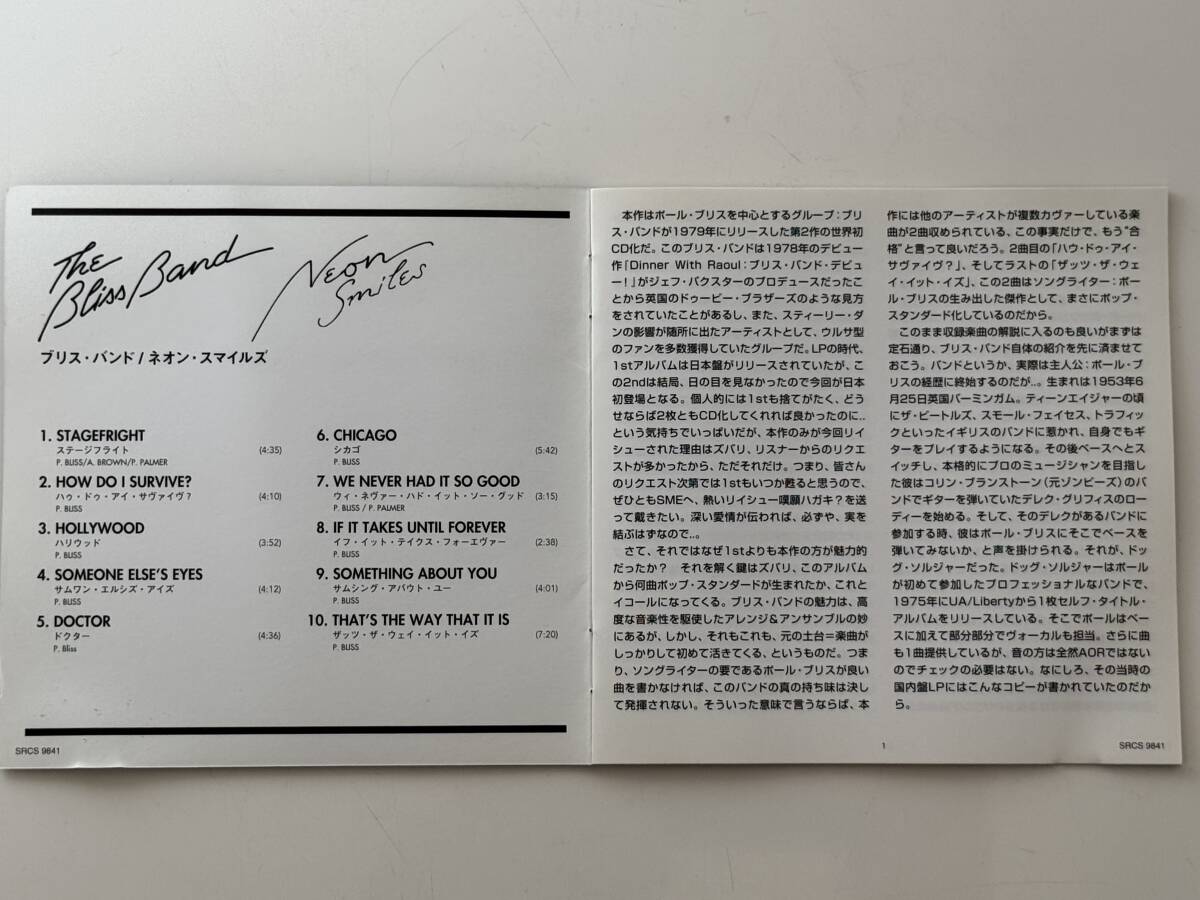 The
Bliss Band
Neon
Smiles
ブリス・バンド / ネオン・スマイルズ
1. STAGEFRIGHT
ステージフライト (4:35)
P. BLISS/A. BROWN/P. PALMER
2. HOW DO I SURVIVE?
ハゥ・ドゥ・アイ・サヴァイヴ? (4:10)
P. BLISS
3. HOLLYWOOD
ハリウッド (3:52)
P. BLISS
4. SOMEONE ELSE'S EYES
サムワン・エルシズ・アイズ (4:12)
P. BLISS
5. DOCTOR
ドクター (4:36)
P. Bliss
6. CHICAGO
シカゴ (5:42)
P. BLISS
7. WE NEVER HAD IT SO GOOD
ウィ・ネヴァー・ハド・イット・ソー・グッド (3:15)
P. BLISS / P. PALMER
8. IF IT TAKES UNTIL FOREVER
イフ・イット・テイクス・フォーエヴァー (2:38)
P. BLISS
9. SOMETHING ABOUT YOU
サムシング・アバウト・ユー (4:01)
P. BLISS
10. THAT'S THE WAY THAT IT IS
ザッツ・ザ・ウェイ・イット・イズ (7:20)
P. BLISS
SRCS 9841
本作はポール・ブリスを中心とするグループ:ブリ
ス・バンドが1979年にリリースした第2作の世界初
CD化だ。このブリス・バンドは1978年のデビュー
作「Dinner With Raoul:ブリス・バンド・デビュ
ー!」がジェフ・バクスターのプロデュースだったこ
とから英国のドゥービー・ブラザーズのような見方
をされていたことがあるし、また、スティーリー・ダ
ンの影響が随所に出たアーティストとして、ウルサ型
のファンを多数獲得していたグループだ。LPの時代、
1stアルバムは日本盤がリリースされていたが、こ
の2ndは結局、日の目を見なかったので今回が日本
初登場となる。個人的には1stも捨てがたく、どう
せならば2枚ともCD化してくれれば良かったのに..
という気持ちでいっぱいだが、本作のみが今回リイ
シューされた理由はズバリ、リスナーからのリクエ
ストが多かったから、ただそれだけ。つまり、皆さん
のリクエスト次第では1stもいつか甦ると思うので、
ぜひともSMEへ、熱いリイシュー嘆願ハガキ?を送
って戴きたい。深い愛情が伝われば、必ずや、実を
結ぶはずなので..。
さて、それではなぜ1stよりも本作の方が魅力的
だったか? それを解く鍵はズバリ、このアルバム
から何曲ポップ・スタンダードが生まれたか、これと
イコールになってくる。ブリス・バンドの魅力は、高
度な音楽性を駆使したアレンジ&アンサンブルの妙
にあるが、しかし、それもこれも、元の土台=楽曲が
しっかりして初めて活きてくる、というものだ。つま
り、ソングライターの要であるポール・ブリスが良い
曲を書かなければ、このバンドの真の持ち味は決し
て発揮されない。そういった意味で言うならば、本
作には他のアーティストが複数カヴァーしている楽
曲が2曲収められている、この事実だけで、もう“合
格”と言って良いだろう。2曲目の「ハウ・ドゥ・アイ・
サヴァイヴ?」、そしてラストの「ザッツ・ザ・ウェ
イ・イット・イズ」、この2曲はソングライター:ポー
ル・ブリスの生み出した傑作として、まさにポップ・
スタンダード化しているのだから。
このまま収録楽曲の解説に入るのも良いがまずは
定石通り、ブリス・バンド自体の紹介を先に済ませて
おこう。バンドというか、実際は主人公:ポール・ブ
リスの経歴に終始するのだが..。生まれは1953年6
月25日英国バーミンガム。ティーンエイジャーの頃
にザ・ビートルズ、スモール・フェイセス、トラフィッ
クといったイギリスのバンドに惹かれ、自身でもギ
ターをプレイするようになる。その後ベースへとス
イッチし、本格的にプロのミュージシャンを目指し
た彼はコリン・ブランストーン(元ゾンビーズ)のバ
ンドでギターを弾いていたデレク・グリフィスのロー
ディーを始める。そして、そのデレクがあるバンドに
参加する時、彼はポール・ブリスにそこでベースを
弾いてみないか、と声を掛けられる。それが、ドッ
グ・ソルジャーだった。ドッグ・ソルジャーはポール
が初めて参加したプロフェッショナルなバンドで、
1975年にUA/Libertyから1枚セルフ・タイトル・
アルバムをリリースしている。そこでポールはベー
スに加えて部分部分でヴォーカルも担当。さらに曲
も1曲提供しているが、音の方は全然AORではない
のでチェックの必要はない。なにしろ、その当時の
国内盤LPにはこんなコピーが書かれていたのだか
ら。
1
SRCS 9841